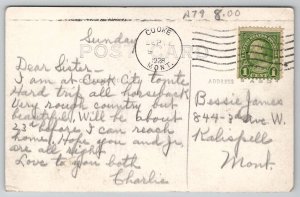 A79 8.00
Sunday
POST CARD
COOKE
SEP
9
1928
MONT.
1 CENT 1
ADDRESS
Dear Sister -
I am at Cook City tonite
Hard trip all horseback
Very rough country but
beautiful. Will be about
23rd before I can reach
home. Hope you and Jr.
are all right
Love to you both
Charlie
Bessie James
844 - 3rd Ave W.
Kalispell
Mont.